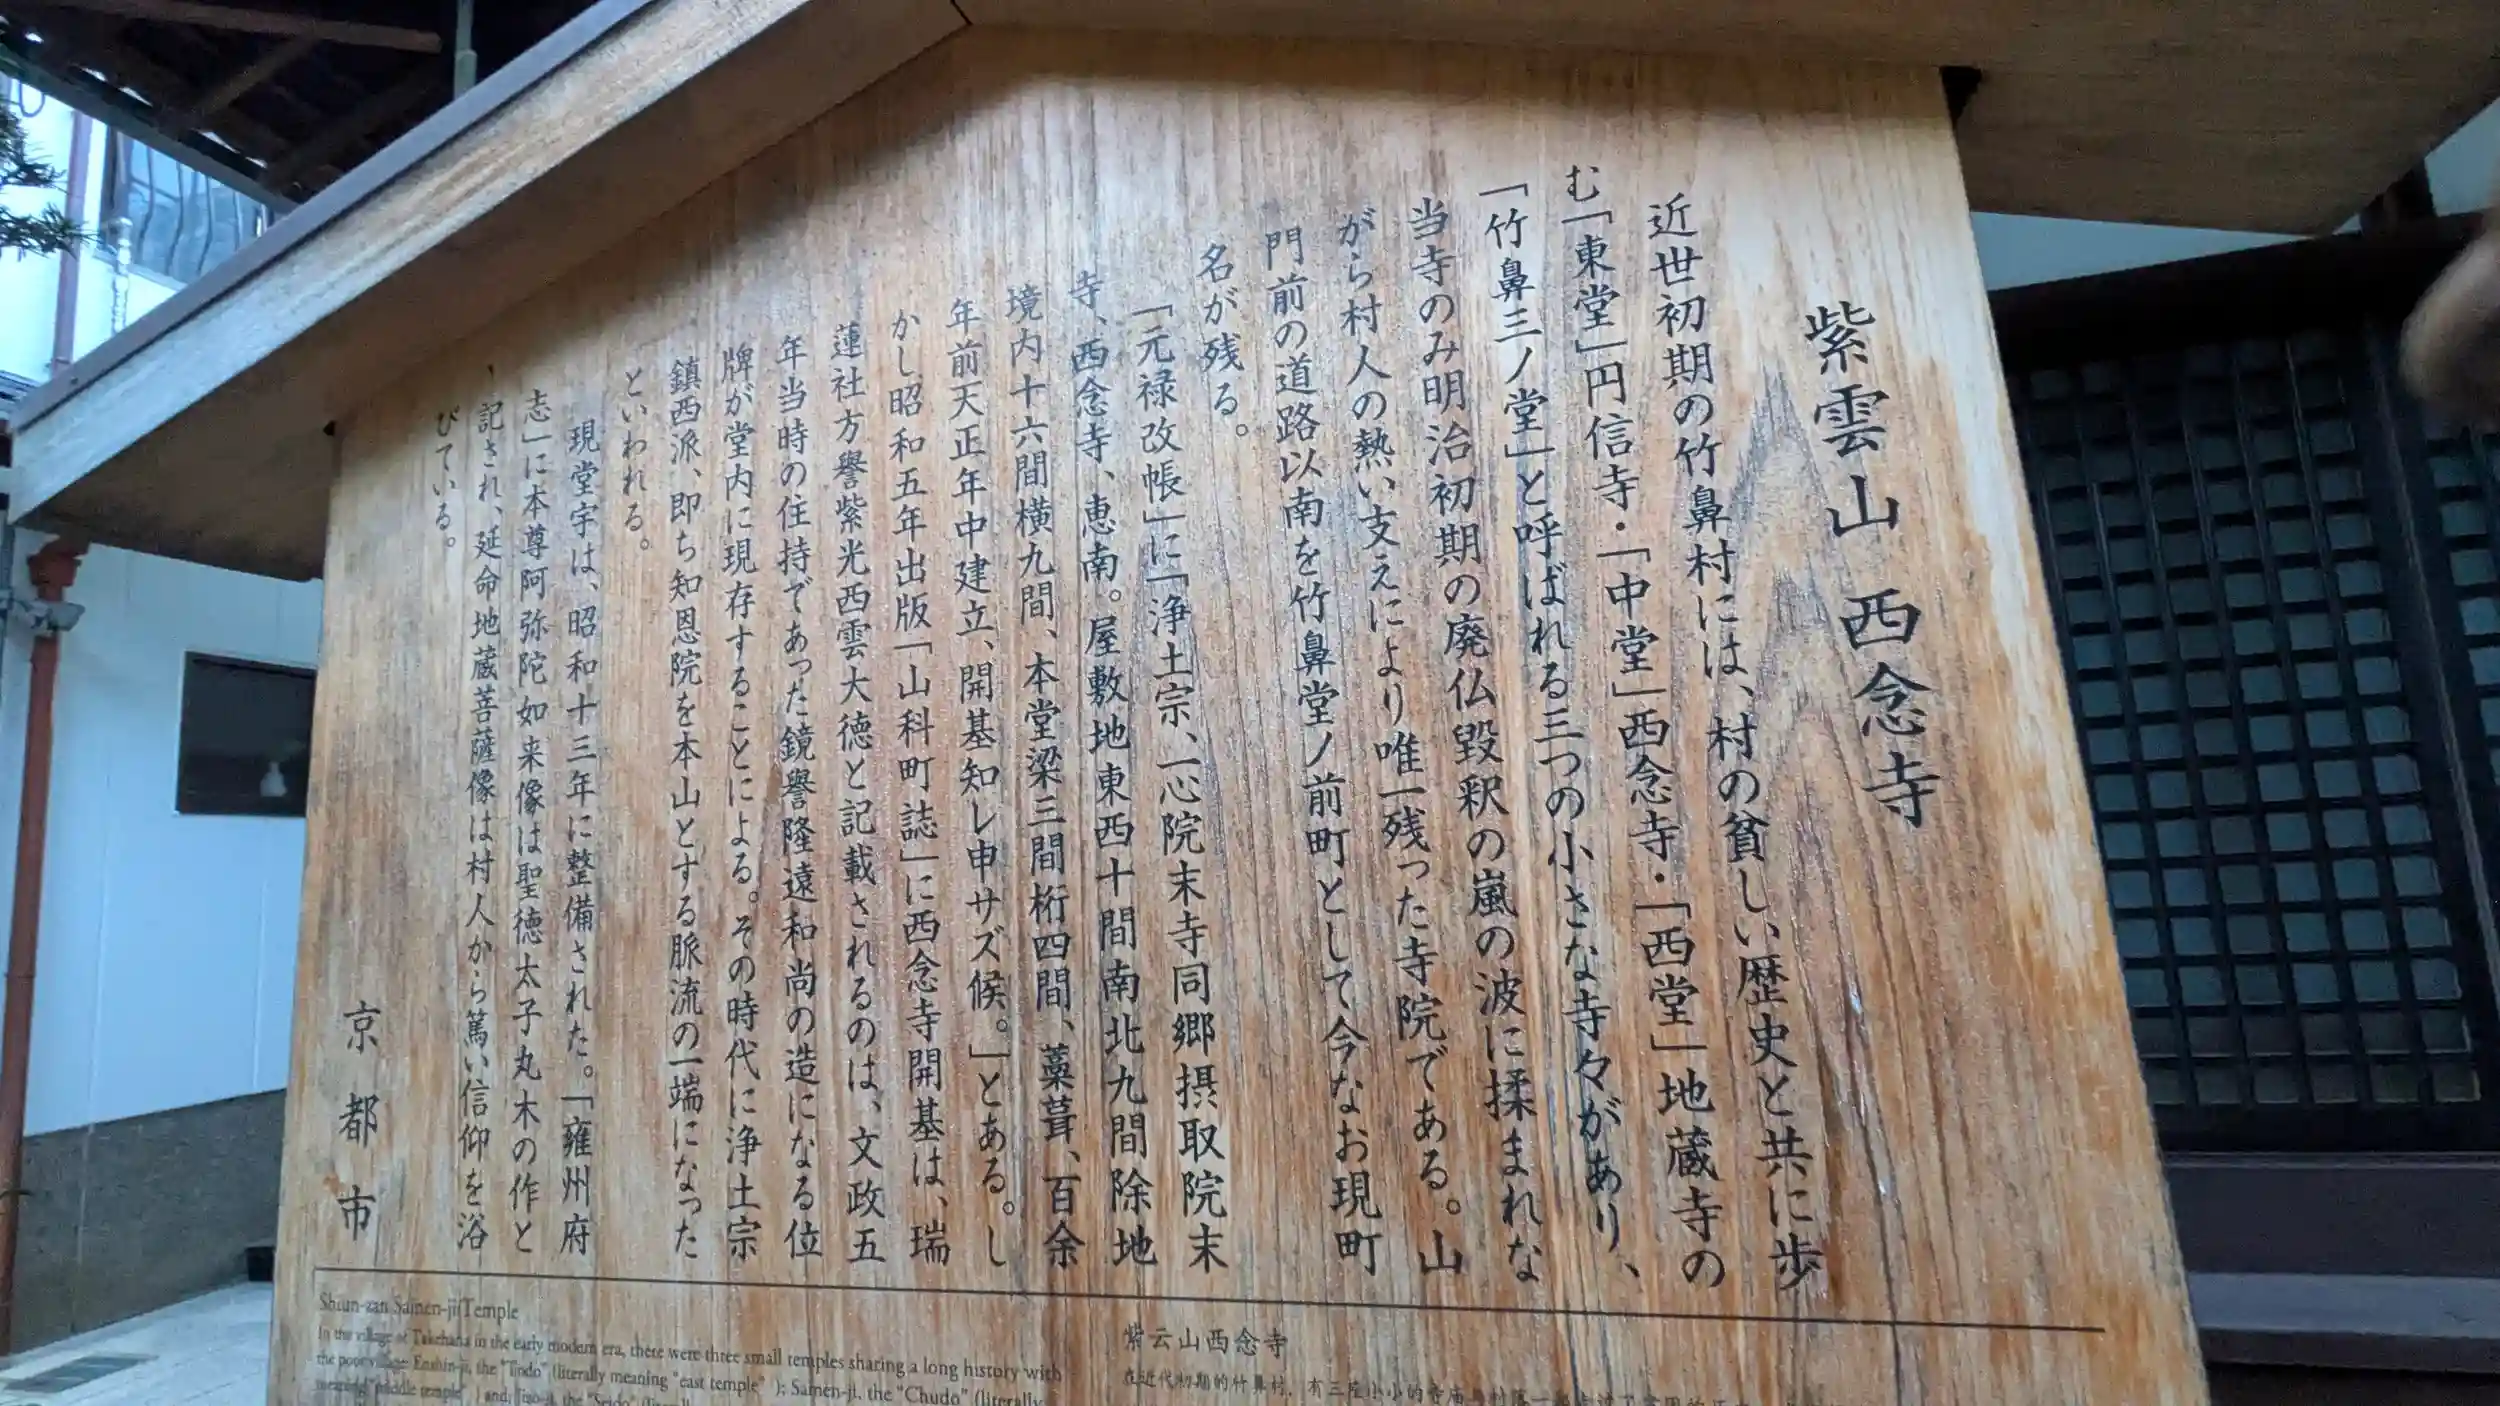 紫雲山 西念寺
近世初期の竹鼻村には、村の貧しい歴史と共に歩
む「東堂」円信寺・「中堂」西念寺・「西堂」地蔵寺の
「竹鼻三ノ堂」と呼ばれる三つの小さな寺々があり、
当寺のみ明治初期の廃仏毀釈の嵐の波に揉まれな
がら村人の熱い支えにより唯一残った寺院である。山
門前の道路以南を竹鼻堂ノ前町として今なお現町
名が残る。
「元禄改帳」に「浄土宗、一心院末寺同郷摂取院末
寺、西念寺、恵南。屋敷地東西十間南北九間除地
境内十六間横九間、本堂梁三間桁四間、藁葺、百余
年前天正年中建立、開基知レ申サズ候。」とある。し
かし昭和五年出版「山科町誌」に西念寺開基は、瑞
蓮社方譽紫光西雲大徳と記載されるのは、文政五
年当時の住持であった鏡譽隆遠和尚の造になる位
牌が堂内に現存することによる。その時代に浄土宗
鎮西派、即ち知恩院を本山とする脈流の一端になった
といわれる。
現堂宇は、昭和十三年に整備された。「雍州府
志」に本尊阿弥陀如来像は聖徳太子丸木の作と
記され、延命地蔵菩薩像は村人から篤い信仰を浴
びている。
京都市
Shiun-zan Sainen-ji Temple
In the village of Takehana in the early modern era, there were three small temples sharing a long history with
the poor village: Enshin-ji, the "Tindo" (literally meaning "east temple" ); Sainen-ji, the "Chudo" (literally
meaning "middle temple" ) and Jiso-ji, the "Seido" (literally
紫云山西念寺
在近代初期的竹鼻村，有三座小小的寺庙